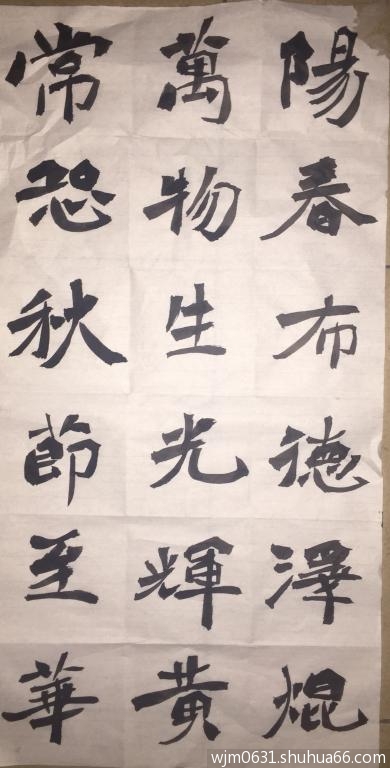 陽春布德澤焜
萬物生光輝黄
常恐秋節至華
wjm0631.shuhua66.com